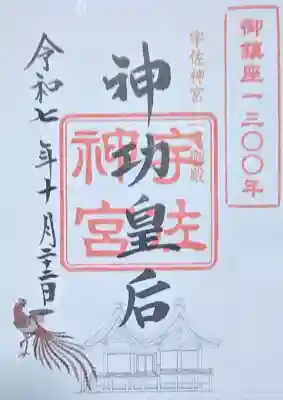 御鎮座一三〇〇年
宇佐神宮 御殿
神功皇后
宇佐神宮
令和七年十月